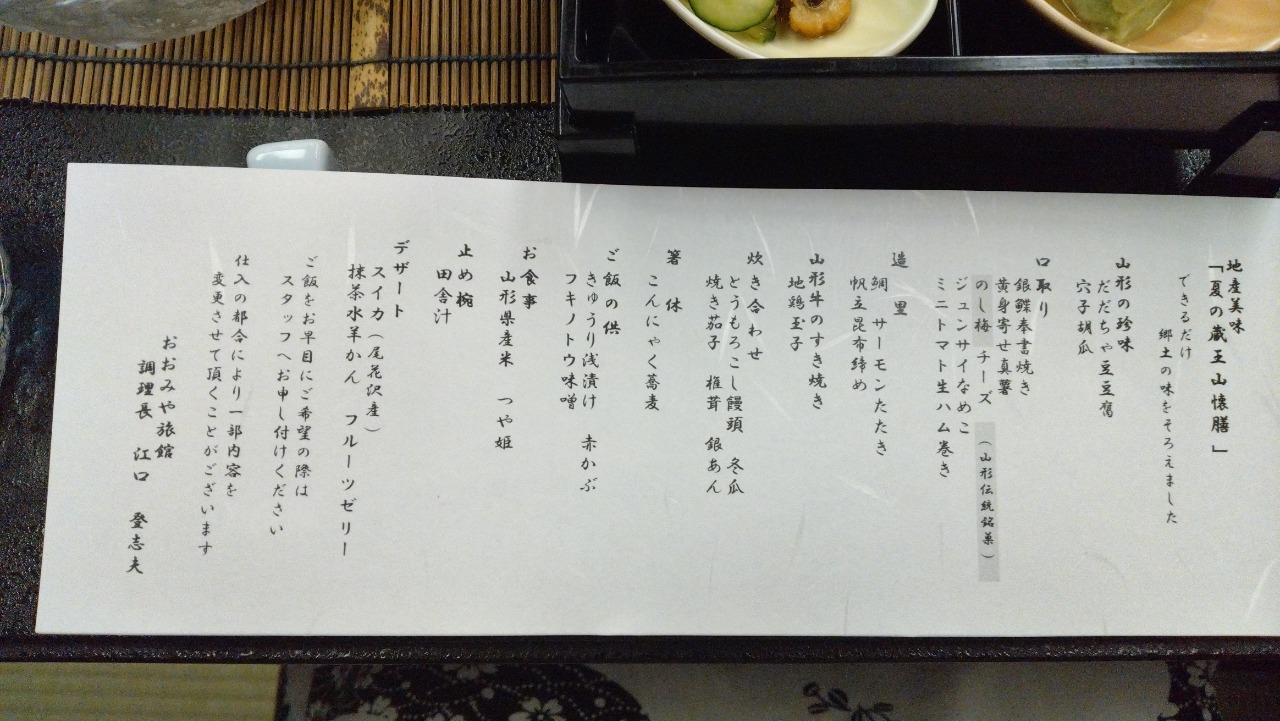 地産美味
「夏の蔵王山懐膳」
できるだけ
郷土の味をそろえました
山形の珍味
だだちゃ豆豆腐
穴子胡瓜
口取り
銀鰈奉書焼き
黄身寄せ真薯
のし梅 チーズ (山形伝統銘菓)
ジュンサイなめこ
ミニトマト生ハム巻き
造 里
鯛 サーモンたたき
帆立昆布締め
山形牛のすき焼き
地鶏玉子
炊き合わせ
とうもろこし饅頭 冬瓜
焼き茄子 椎茸 銀あん
箸 休
こんにゃく蕎麦
ご飯の供
きゅうり浅漬け 赤かぶ
フキノトウ味噌
お食事
山形県産米 つや姫
止め椀
田舎汁
デザート
スイカ(尾花沢産)
抹茶水羊かん フルーツゼリー
ご飯をお早目にご希望の際は
スタッフへお申し付けください
仕入の都合により一部内容を
変更させて頂くことがございます
おおみや旅館
調理長 江口 登志夫